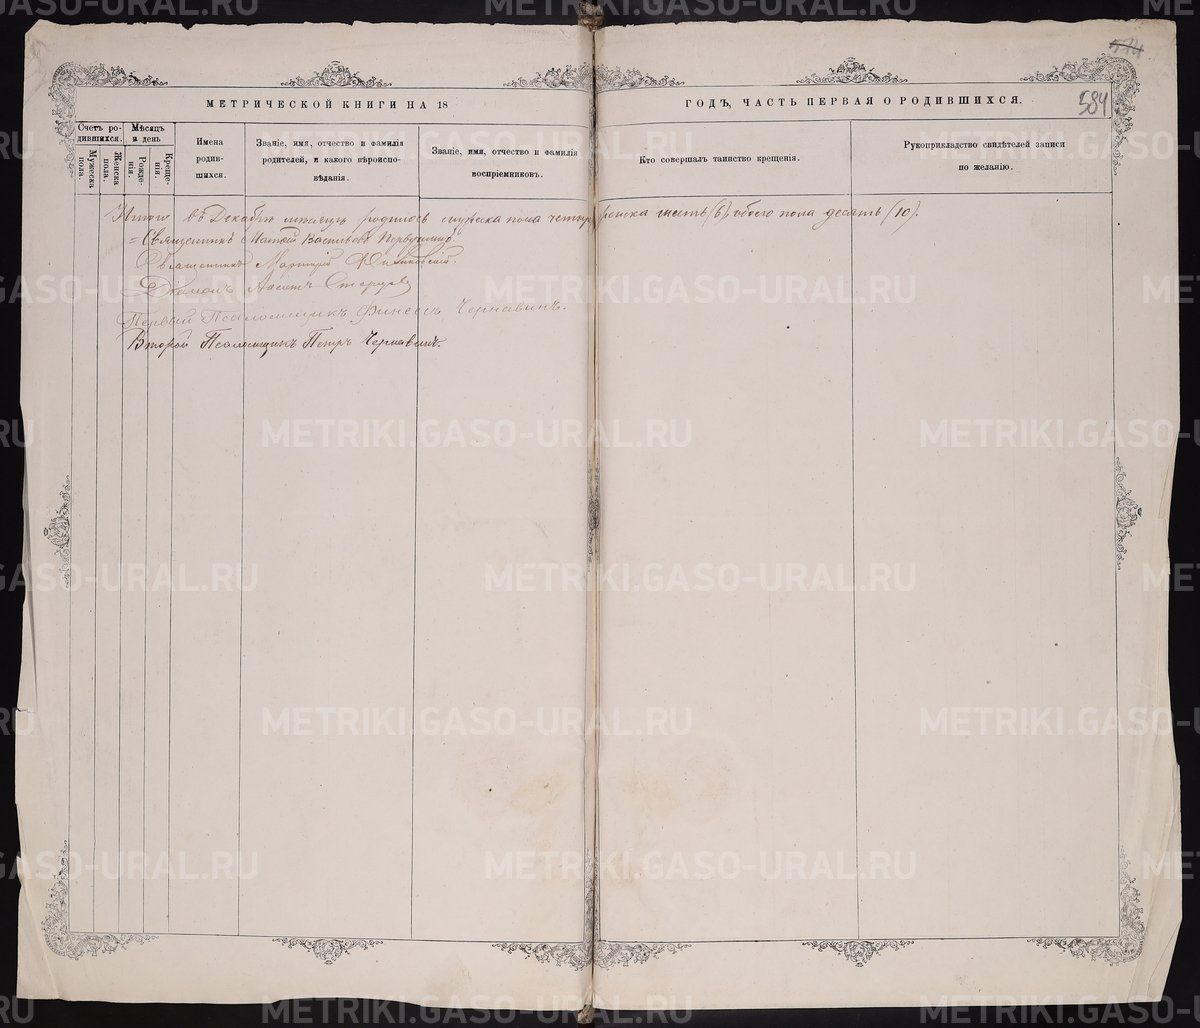 584
МЕТРИЧЕСКОЙ КНИГИ НА 18
ГОДЪ, ЧАСТЬ ПЕРВАЯ О РОДИВШИХСЯ.
Счетъ ро-
дившихся.
Мѣсяцъ
и день
Мужеска
пола.
Женска
пола.
Рожде-
нія.
Креще-
нія.
Имена
родив-
шихся.
Званіе, имя, отчество и фамилія
родителей, и какого вѣроиспо-
вѣданія.
Званіе, имя, отчество и фамилія
воспріемниковъ.
Кто совершалъ таинство крещенія.
Рукоприкладство свидѣтелей записи
по желанію.
Итого въ Декабрѣ мѣсяцѣ родилось мужеска пола четыре женска шесть (6) обоего пола десять (10).
Священникъ Васильевъ
Священникъ
Діаконъ
Первый Псаломщикъ Финеесъ Чернавинъ.
Второй Псаломщикъ Петръ Чернавинъ.
METRIKI.GASO-URAL.RU